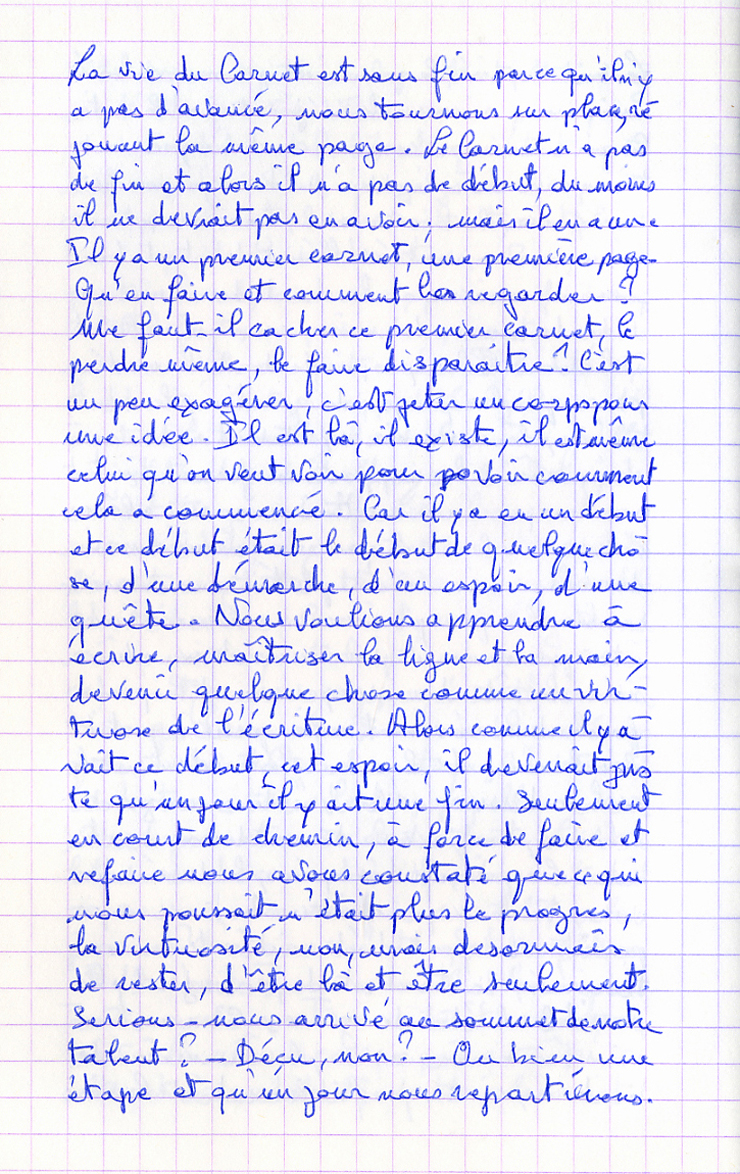 La vie du Carnet est sans fin parce qu'il n'y
a pas d'avancé, nous tournons sur place, ré
jouant la même page. Le Carnet n'a pas
de fin et alors il n'a pas de début, du moins
il ne devrait pas en avoir; mais il en a un.
Il y a un premier carnet, une première page.
Qu'en faire et comment les regarder ?
Me faut-il cacher ce premier carnet, le
perdre même, le faire disparaître ? C'est
un peu exagérer, c'est jeter un corps pour
une idée. Il est là, il existe, il est même
celui qu'on veut voir pour savoir comment
cela a commencé. Car il y a eu un début
et ce début était le début de quelque cho
se, d'une démarche, d'un espoir, d'une
quête. Nous voulions apprendre à
écrire, maîtriser la ligne et la main,
devenir quelque chose comme un vir-
tuose de l'écriture. Alors comme il y a-
vait ce début, cet espoir, il devenait jus
te qu'un jour il y ait une fin. Seulement
en court de chemin, à force de faire et
refaire nous avons constaté que ce qui
nous poussait n'était plus le progres,
la virtuosité, non, mais desormais
de rester, d'être là et être seulement.
Serions-nous arrivé au sommet de notre
talent ? - Déçu, non ? - Ou bien une
étape et qu'un jour nous repartirons.